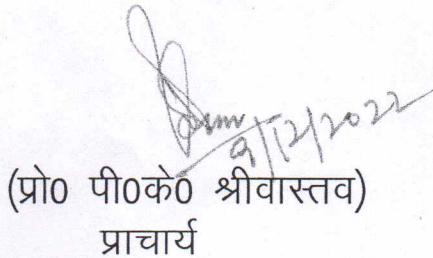 9/12/2022
(प्रो0 पी0के0 श्रीवास्तव)
प्राचार्य